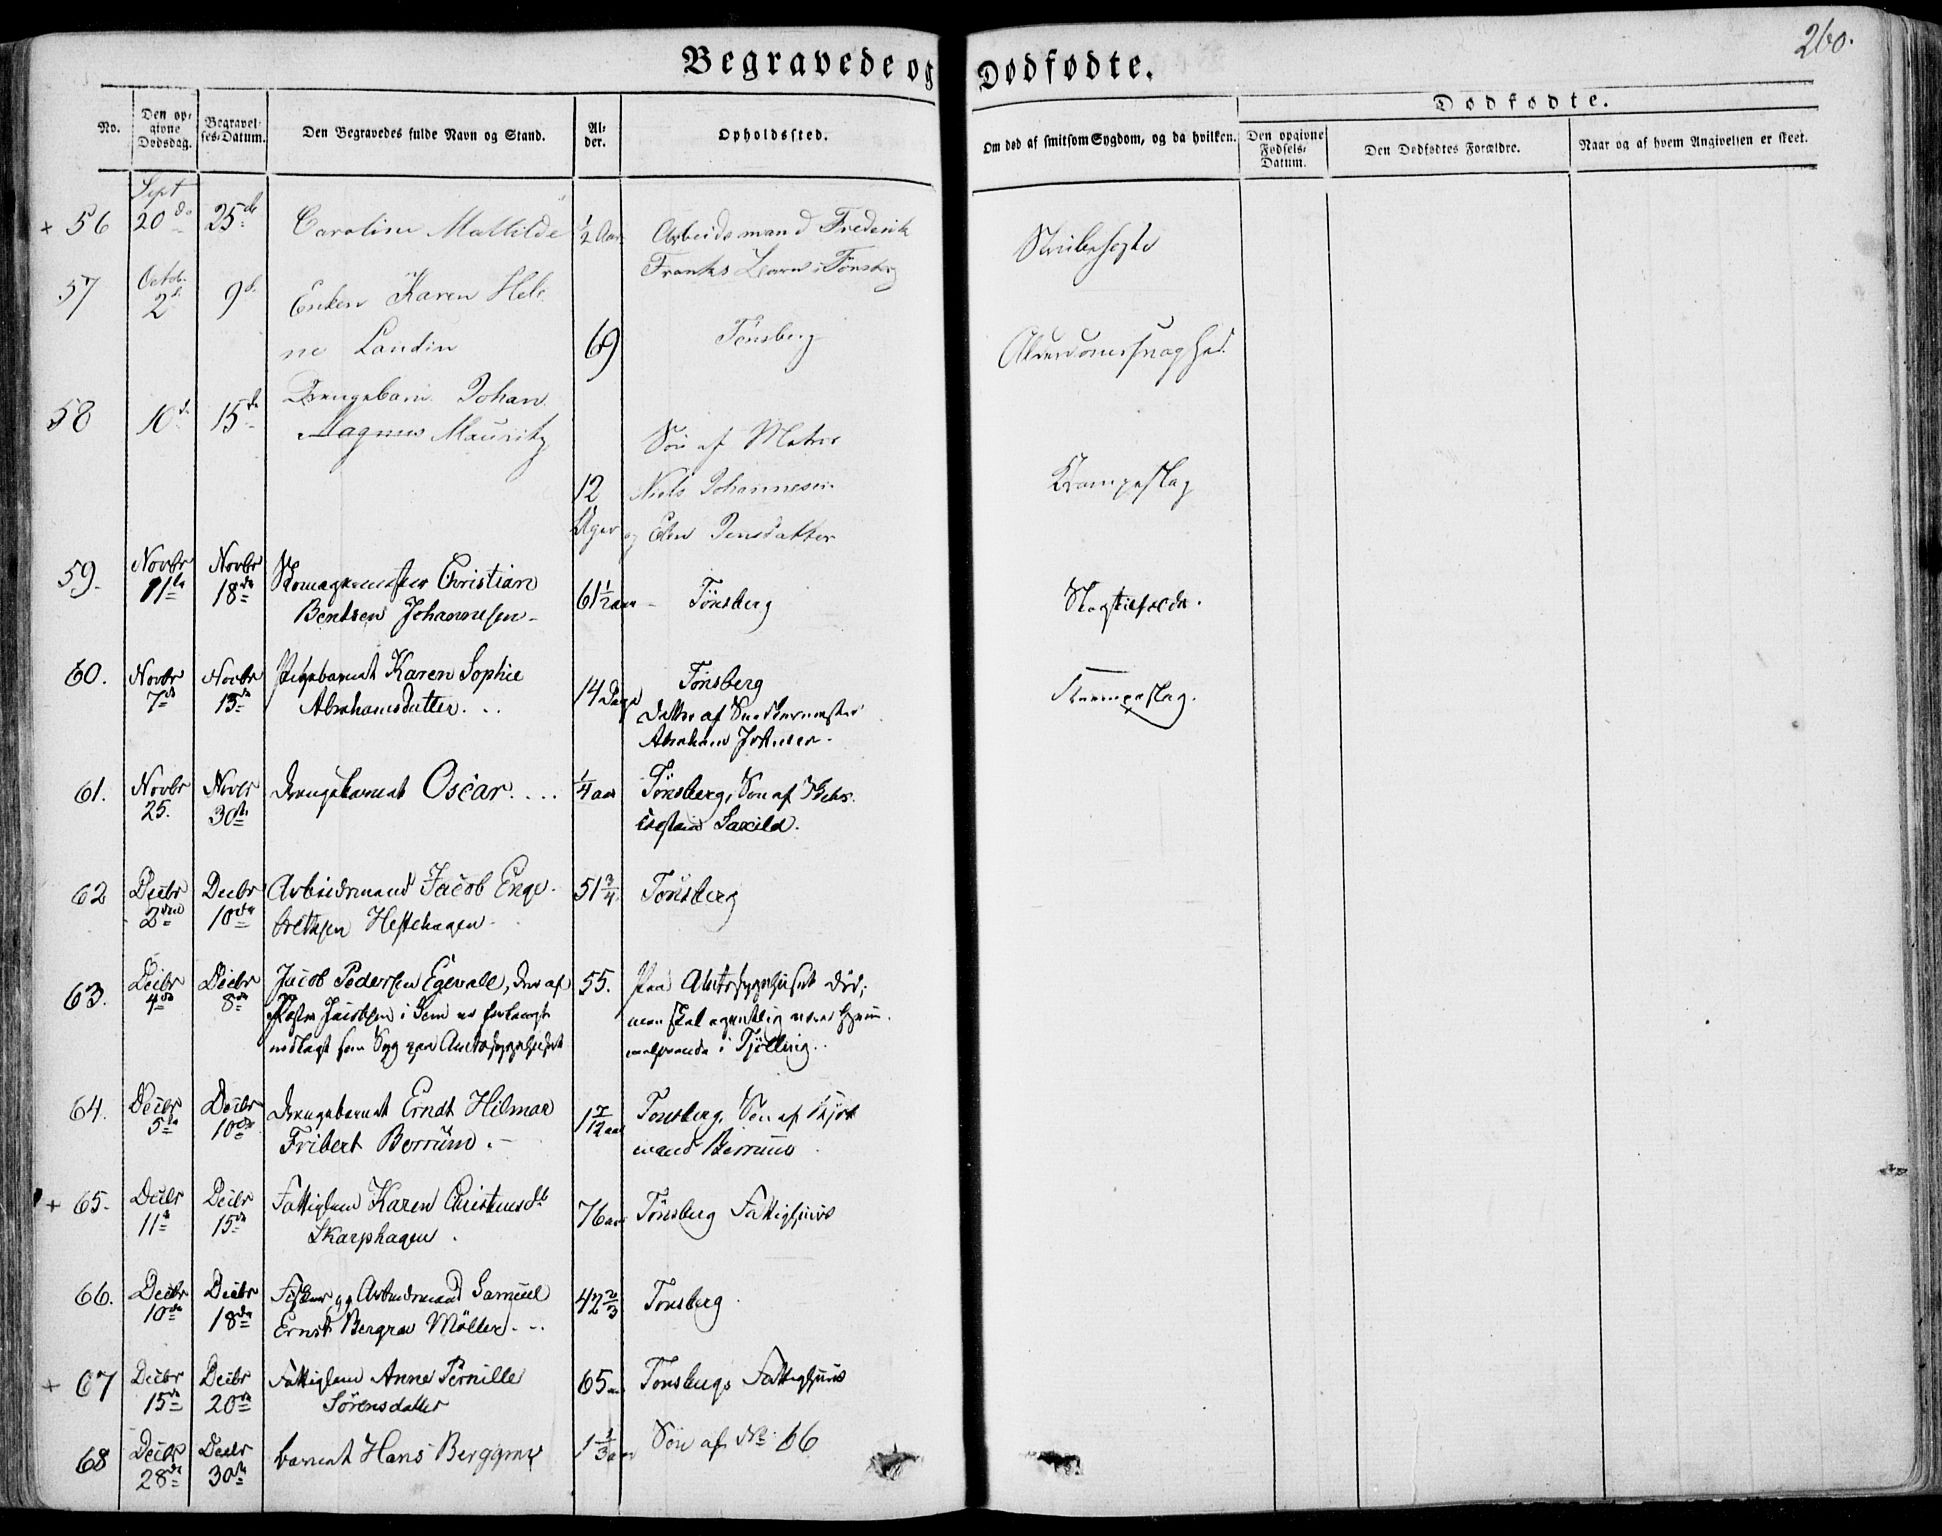 260.
Begravede og Dødfødte.
No.
Den opgivne Dødsdag.
Begravelses-Datum.
Den Begravedes fulde Navn og Stand.
Alder.
Opholdssted.
Om død af smitsom Sygdom, og da hvilken.
Dødfødte.
Den opgivne Fødsels-Datum.
Den Dødfødtes Forældre.
Naar og af hvem Angivelsen er skeet.
+ 56 Sept 20de 25de Caroline Mathilde 1/2 Aar Arbeidsmand Frederik
Franks Barn i Tønsberg Strubehoste
57 Octob. 2d. 9d. Enken Karen Hele
ne Landin 69 Tønsberg Alderdomssvaghed.
58 10d. 15de Drengebarn Johan
Magnus Mauritz Søn af Matros
12 Niels Johannesen Krampeslag
Uger og Elen Jensdatter
59. Novbr 11te Novbr 18de Skomagermester Christian
Bentsen Johannesen 61 1/2 aar Tønsberg Slagtilfælde.
60. Novbr 7de Novbr 13de Pigebarnet Karen Sophie
Abrahamsdatter. .. 14 Dage Tønsberg
Datter af Snedkermester
Abraham Krampeslag.
61. Novbr 25. Novbr 30te Drengebarnet Oscar. ... 1/4 aar Tønsberg, Søn af
Saxild.
62 Decbr 2den Decbr 10de Arbeidsmand Jacob Enge
brethsen Hestehagen 51 3/4 Tønsberg
63. Decbr 4de Decbr 8de Jacob Pedersen Egevall, der af
Jacobsen i Sem er forlangt
indlagt som Syg paa Amtssygehuset 55. Paa Amtssygehuset død;
men skal egentlig være hjem
i Tjølling.
64. Decbr 5te Decbr 10de Drengebarnet Erndt Hilmar
Fribert Borrum. 1 7/12 aar Tønsberg, Søn af
mand Borrum
+ 65. Decbr 11te Decbr 15de Fattiglem Karen Christensdtr
Skarphagen. 76 aar Tønsberg Fattighuus
66. Decbr 10de Decbr 18de Fisker og Arbeidsmand Samuel
Ernst Bergrav Møller. .. 42 2/3 Tønsberg
+ 67 Decbr 15de Decbr 20de Fattiglem Anne Pernille
Sørensdatter 65 aar Tønsbergs Fattighuus
68 Decbr 28de Decbr 30te barnet Hans Berggrav 1 1/3 aar Søn af No. 66